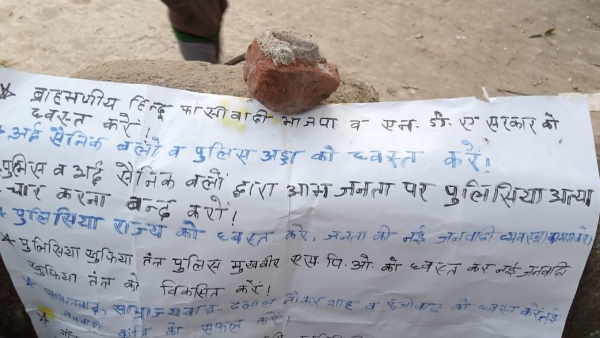 * ब्राहमणीय हिन्दू फासीवादी भाजपा व एन. डी. ए सरकार को
ध्वस्त करें!
* अर्द्ध सैनिक बलों व पुलिस अड्डा को ध्वस्त करें!
पुलिस व अर्द्ध सैनिक बलों द्वारा आम जनता पर पुलिसिया अत्या
चार करना बन्द करों!
* पुलिसिया राज्य को ध्वस्त करें, जनता की नई जनवादी व्यवस्था
* पुलिसिया खुफिया तंत्र पुलिस मुखबीर एस. पि. ओ. को ध्वस्त कर नई जनवादी
खुफिया तंत्र को विकसित करें!
साम्राज्यवाद, दलाल नौकरशाह व को ध्वस्त कर नई
क्रांति को सफल करें!